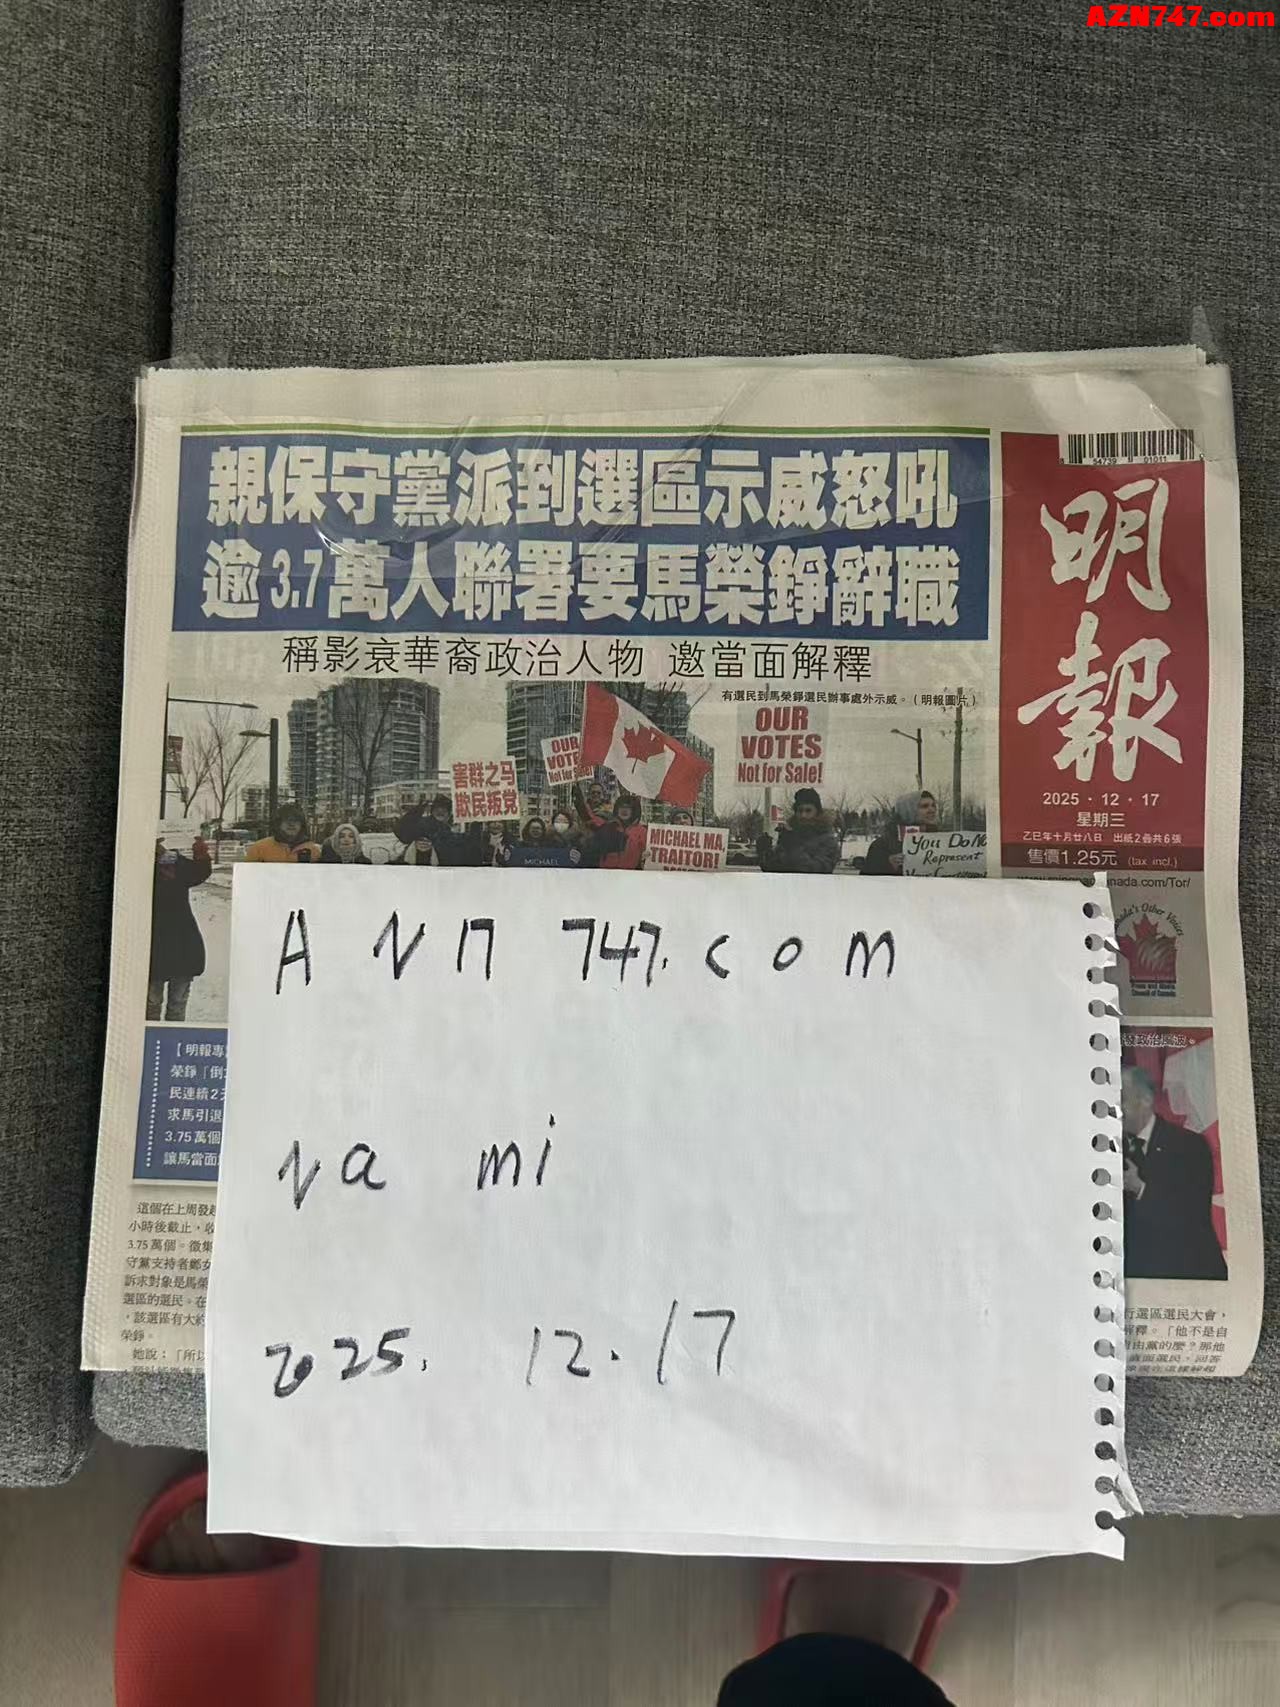 AZN747.com
親保守黨派到選區示威怒吼
逾3.7萬人聯署要馬榮錚辭職
稱影衰華裔政治人物 邀當面解釋
有選民到馬榮錚選民辦事處外示威。(明報圖片)
OUR
VOTES
Not for Sale!
OUR
VOTE
Not for Sale!
害群之马
欺民叛党
MICHAEL MA,
TRAITOR!
You Do No
Represent
Your Constituent
MICHAEL
54739
01011
明報
2025.12.17
星期三
乙巳年十月廿八日 出紙2疊共6張
售價1.25元 (tax incl.)
anada.com/Tor/
ada's Other Voices
Press and Media
Council of Canada
A N 17 747.com
Na mi
2025. 12.17
【明報專
榮錚「倒
民連續2
求馬引退
3.75萬個
讓馬當面
這個在上周發起
小時後截止,收
3.75萬個。徵集
守黨支持者鄭女
訴求對象是馬榮
選區的選民。在
,該選區有大約
榮錚。
她說:「所以
發政治風波。
行選區選民大會,
解釋。「他不是自
由黨的麼?那他
直面選民,回答